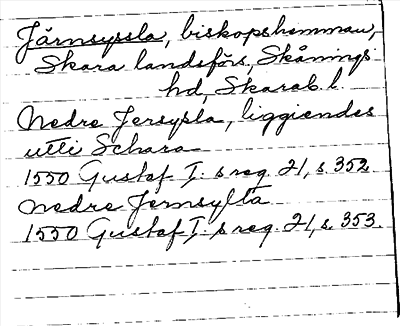 Järnsyssla, biskopshemman,
Skara landsförs, Skånings
hd, Skarab. l.
Nedre Jersysla, liggiendes
utti Schara
1550 Gustaf I: s reg. 21, s. 352
Nedre Jernsylta
1550 Gustaf I: s reg. 21, s. 353.